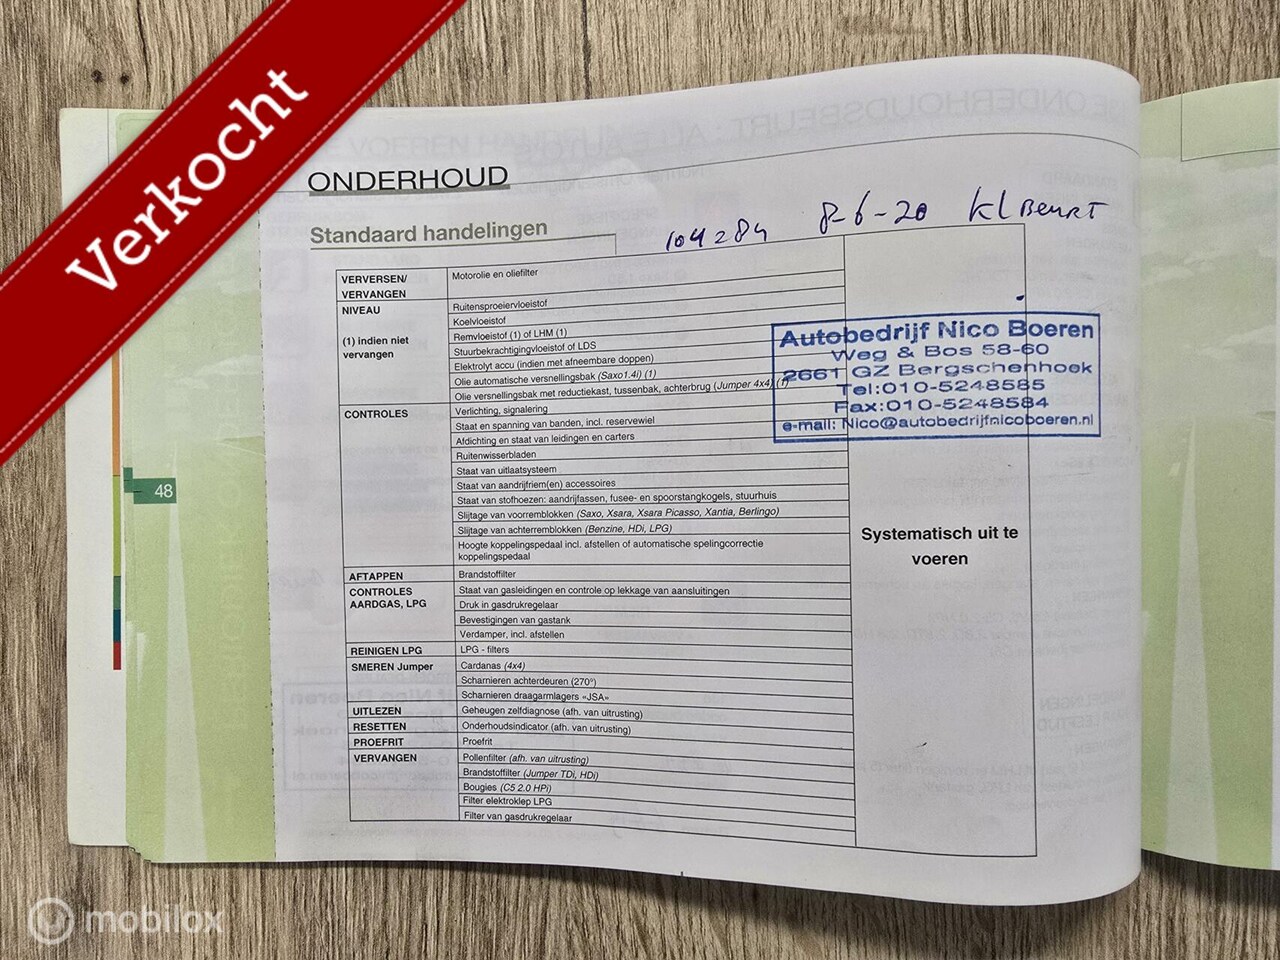 Verkocht
ONDERHOUD
Standaard handelingen
104284 8-6-20 KL BEURT
VERVERSEN/
VERVANGEN
Motorolie en oliefilter
NIVEAU
(1) indien niet
vervangen
Ruitensproeiervloeistof
Koelvloeistof
Remvloeistof (1) of LHM (1)
Stuurbekrachtigingvloeistof of LDS
Elektrolyt accu (indien met afneembare doppen)
Olie automatische versnellingsbak (Saxo1.4i) (1)
Olie versnellingsbak met reductiekast, tussenbak, achterbrug (Jumper 4x4) (1)
CONTROLES
Verlichting, signalering
Staat en spanning van banden, incl. reservewiel
Afdichting en staat van leidingen en carters
Ruitenwisserbladen
Staat van uitlaatsysteem
Staat van aandrijfriem(en) accessoires
Staat van stofhoezen: aandrijfassen, fusee- en spoorstangkogels, stuurhuis
Slijtage van voorremblokken (Saxo, Xsara, Xsara Picasso, Xantia, Berlingo)
Slijtage van achterremblokken (Benzine, HDi, LPG)
Hoogte koppelingspedaal incl. afstellen of automatische spelingcorrectie
koppelingspedaal
AFTAPPEN
Brandstoffilter
CONTROLES
AARDGAS, LPG
Staat van gasleidingen en controle op lekkage van aansluitingen
Druk in gasdrukregelaar
Bevestigingen van gastank
Verdamper, incl. afstellen
REINIGEN LPG
LPG - filters
SMEREN Jumper
Cardanas (4x4)
Scharnieren achterdeuren (270°)
Scharnieren draagarmlagers «JSA»
UITLEZEN
Geheugen zelfdiagnose (afh. van uitrusting)
RESETTEN
Onderhoudsindicator (afh. van uitrusting)
PROEFRIT
Proefrit
VERVANGEN
Pollenfilter (afh. van uitrusting)
Brandstoffilter (Jumper TDi, HDi)
Bougies (C5 2.0 HPi)
Filter elektroklep LPG
Filter van gasdrukregelaar
Autobedrijf Nico Boeren
Weg & Bos 58-60
2661 GZ Bergschenhoek
Tel:010-5248585
Fax:010-5248584
e-mail: Nico@autobedrijfnicoboeren.nl
Systematisch uit te
voeren
48
mobilox